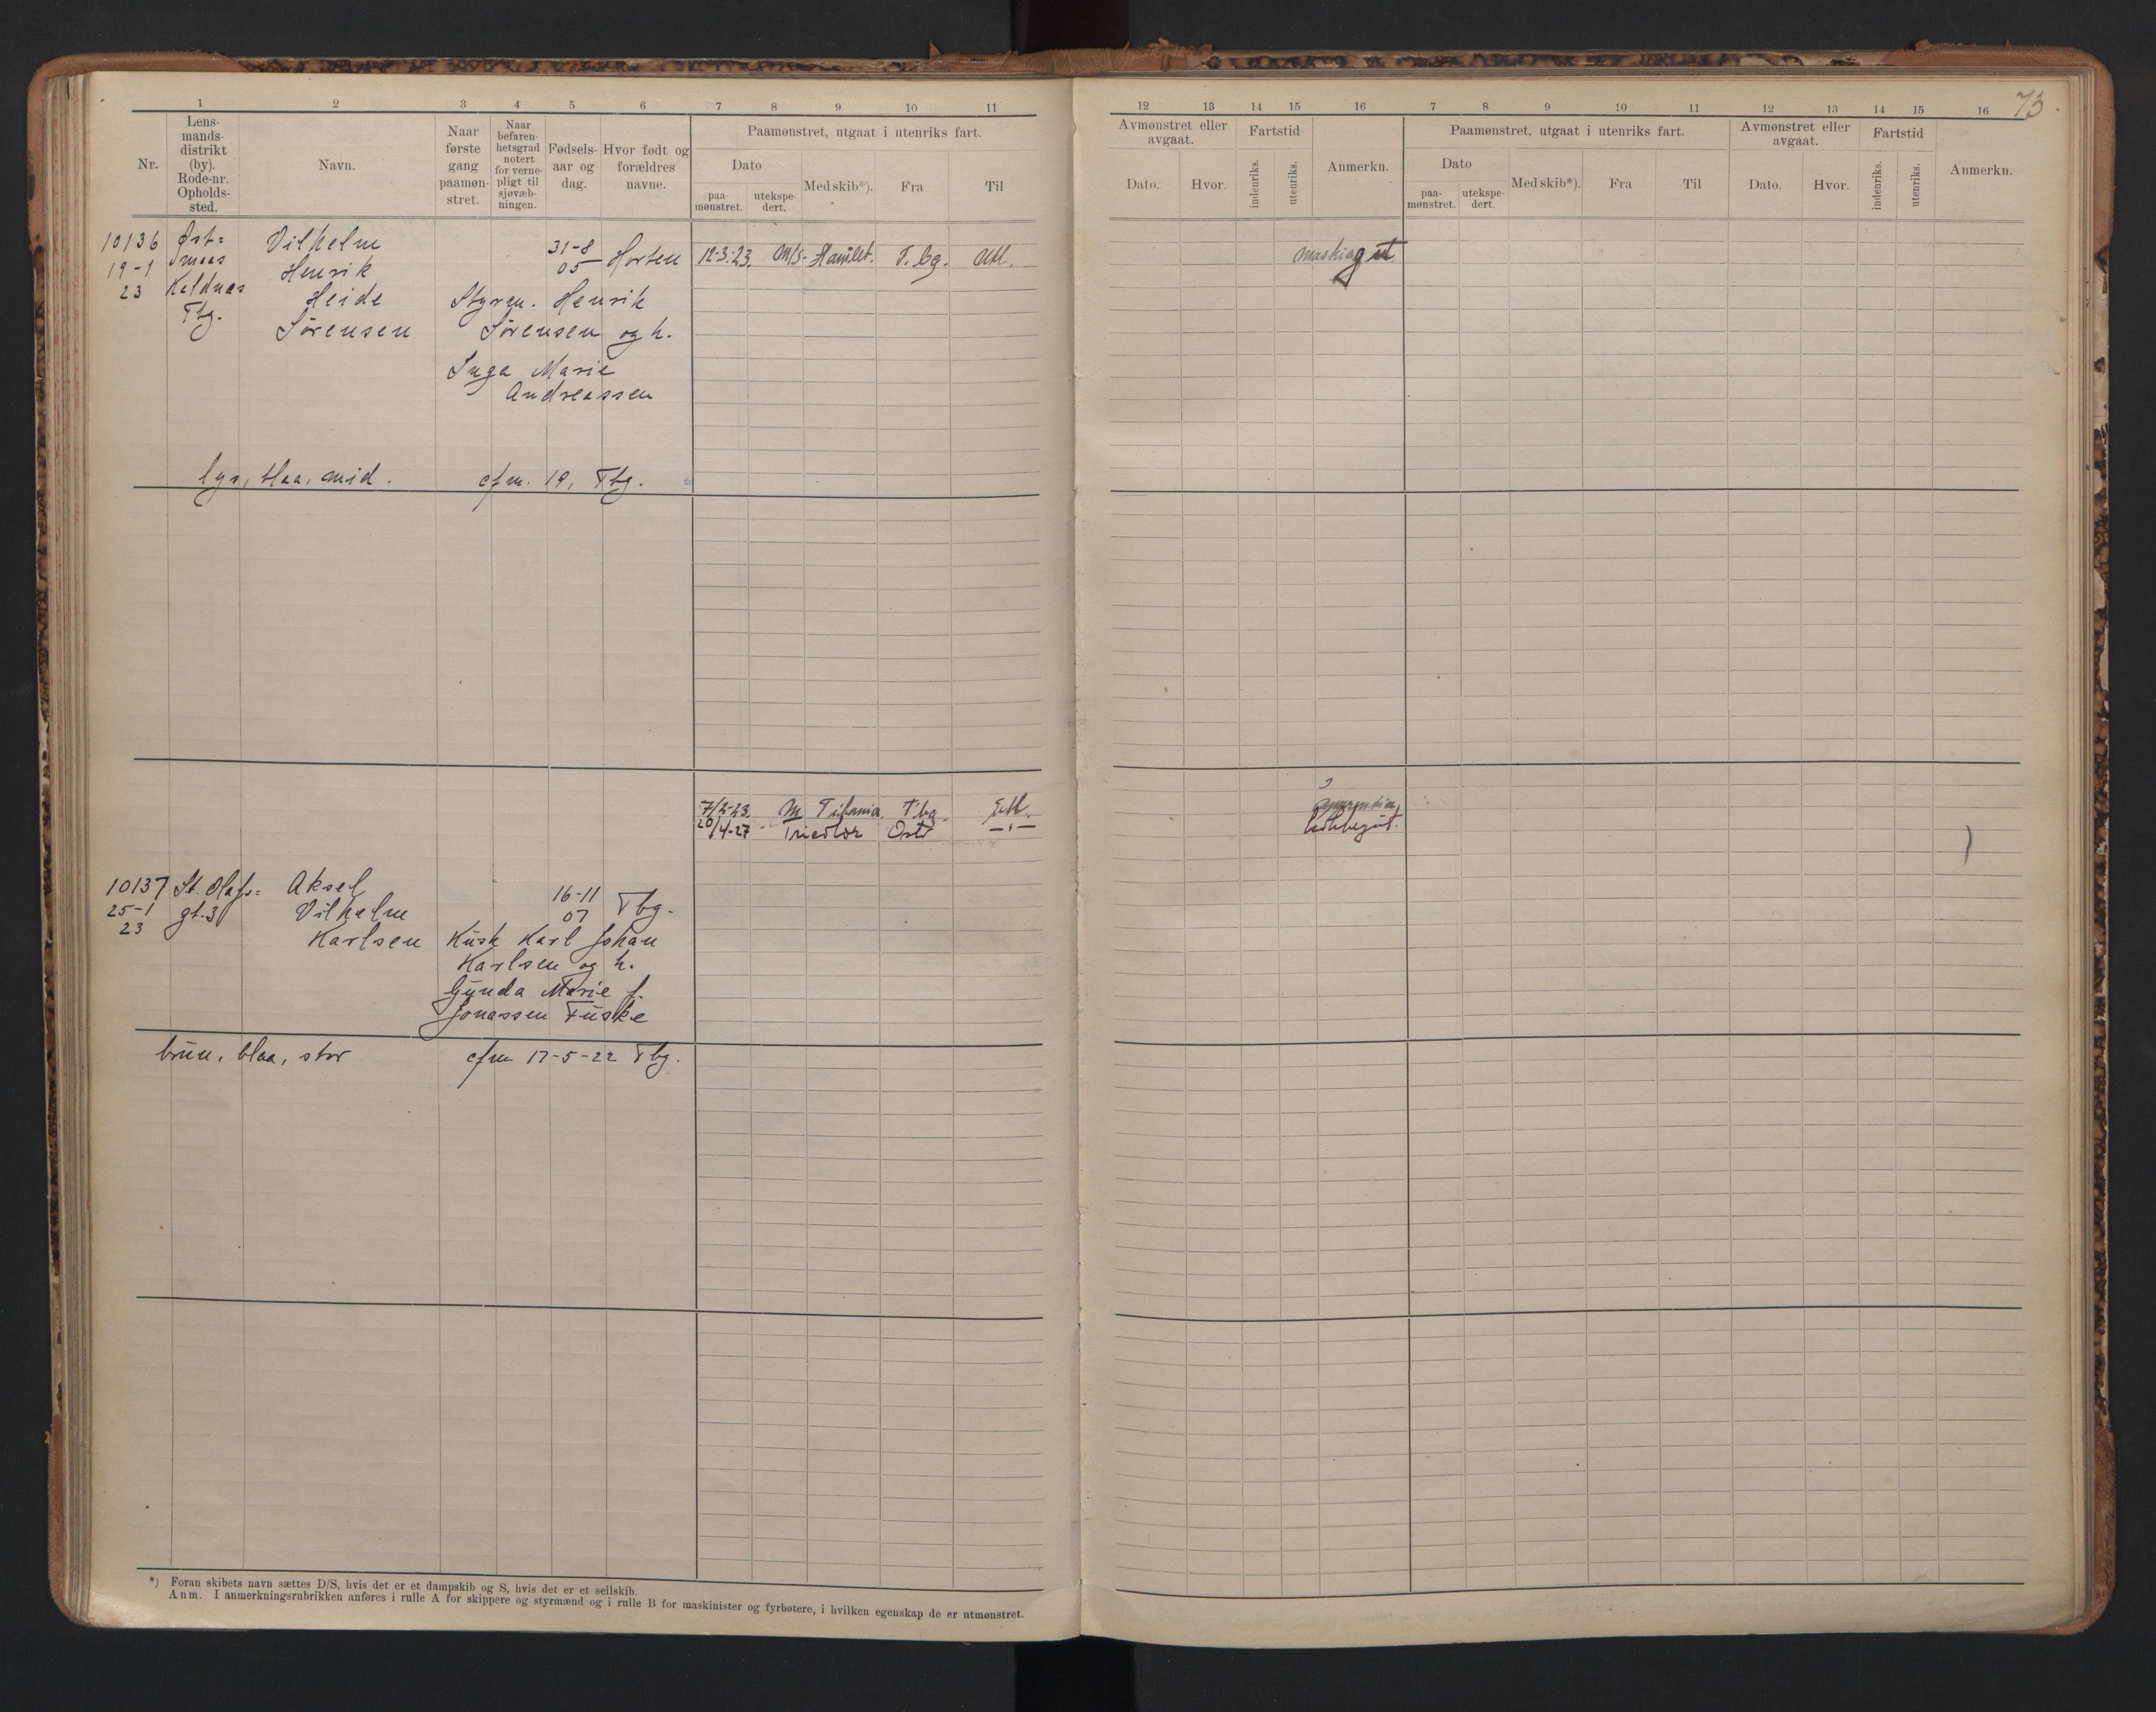 73
1 2 3 4 5 6 7 8 9 10 11
12 13 14 15 16 7 8 9 10 11 12 13 14 15 16
Nr.
Lens-
mands-
distrikt
(by).
Rode-nr.
Opholds-
sted.
Navn.
Naar
første
gang
paamøn-
stret.
Naar
befaren-
hetsgrad
notert
for verne-
pligt til
sjøvæb-
ningen.
Fødsels-
aar og
dag.
Hvor født og
forældres
navne.
Paamønstret, utgaat i utenriks fart.
Dato
paa-
mønstret.
utekspe-
dert.
Med skib*).
Fra
Til
Avmønstret eller
avgaat.
Dato.
Hvor.
Fartstid
indenriks.
utenriks.
Anmerkn.
Paamønstret, utgaat i utenriks fart.
Dato
paa-
mønstret.
utekspe-
dert.
Med skib*).
Fra
Til
Avmønstret eller
avgaat.
Dato.
Hvor.
Fartstid
indenriks.
utenriks.
Anmerkn.
10136
19-1
23
Øst=
Keldnæs
Tbg.
Vilhelm
Henrik
Heide
Sörensen
31-8
05
Horten
Styrm. Henrik
Sörensen og h.
Inga Marie
Andreassen
12-3-23. M/S- Hamlet. T.bg. Utl.
maskingut
lys, blaa, mid.
cfm. 19, Tbg.
7/2-23 M Titania. Tbg. Utl.
20/4-27 " Tricolor Oslo —"—
10137
25-1
23
St. Olafs=
gt. 3
Aksel
Vilhelm
Karlsen
16-11
07
Tbg.
Kusk Karl Johan
Karlsen og h.
Gunda Marie f.
Jonassen Fuske
brun, blaa, stor
cfm 17-5-22 Tbg.
*) Foran skibets navn sættes D/S, hvis det er et dampskib og S, hvis det er et seilskib.
Anm. I anmerkningsrubrikken anføres i rulle A for skippere og styrmænd og i rulle B for maskinister og fyrbøtere, i hvilken egenskap de er utmønstret.